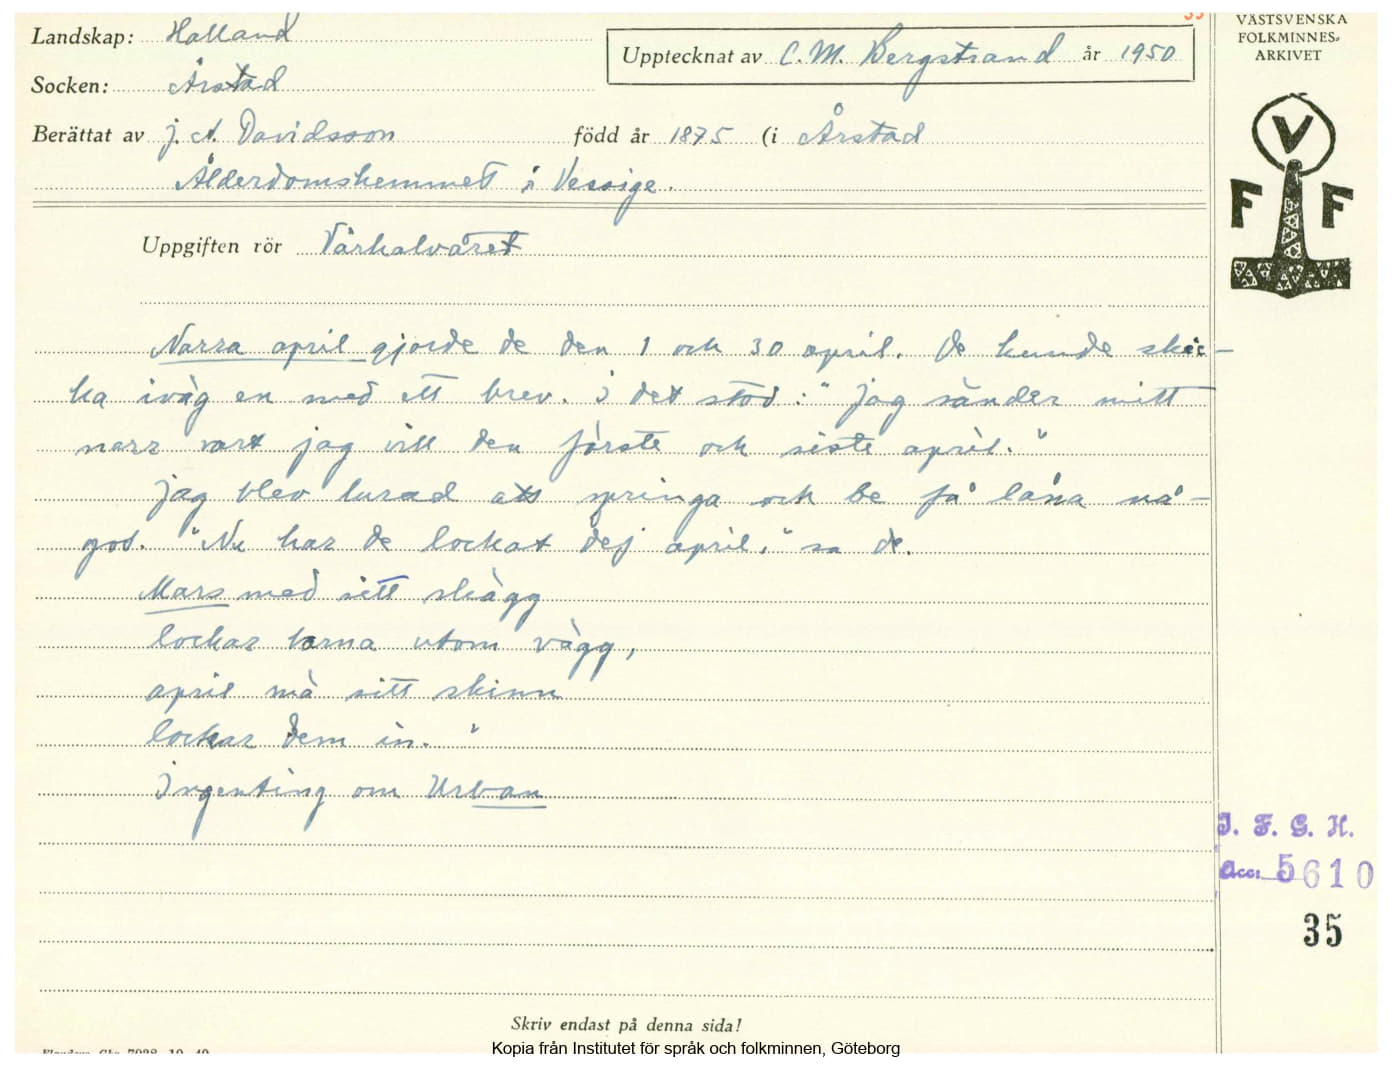 Landskap: Halland
Upptecknat av C. M. Bergstrand år 1950
VÄSTSVENSKA
FOLKMINNES-
ARKIVET
Socken: Årstad
Berättat av J. A. Davidsson född år 1875 (i Årstad
Ålderdomshemmet i Vessige.
V
F F
Uppgiften rör Vårhalvåret
Narra april gjorde de den 1 och 30 april. De kunde skic-
ka iväg en med ett brev. I det stod: "Jag sänder mitt
narr vart jag vill den förste och siste april."
Jag blev lurad att springa och be få låna nå-
got. "Nu har de lockat dej april," sa de.
Mars med sitt skägg
lockar barna utom vägg,
april må sitt skinn
lockar dem in."
Ingenting om Urban
I. F. G. H.
Acc. 5610
35
Skriv endast på denna sida!
Kopia från Institutet för språk och folkminnen, Göteborg